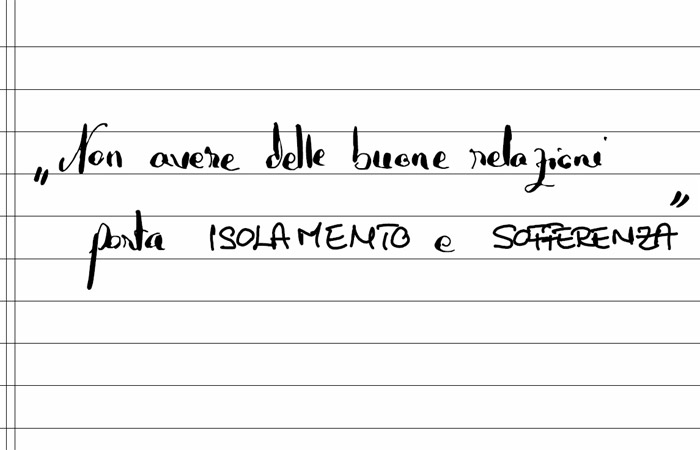 „Non avere delle buone relazioni
porta ISOLAMENTO e SOFFERENZA”